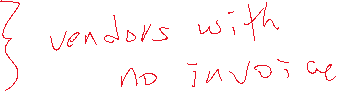 vendors with
no invoice